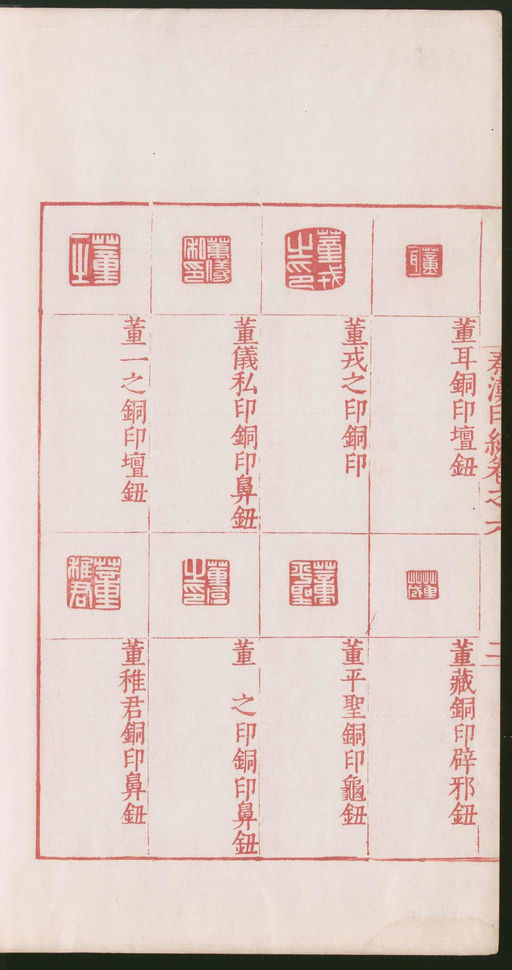 秦漢印統卷之八
三
董耳銅印壇鈕
董戎之印銅印
董儀私印銅印鼻鈕
董一之銅印壇鈕
董藏銅印辟邪鈕
董平聖銅印龜鈕
董 之印銅印鼻鈕
董稚君銅印鼻鈕